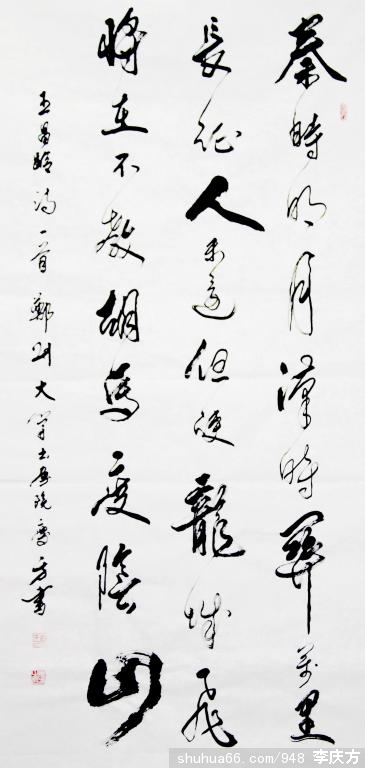 秦時明月漢時關萬里
長征人未還但使龍城飛
將在不教胡馬度陰山
王昌齡詩一首鄭州大學書法院慶方書
shuhua66.com/948 李庆方